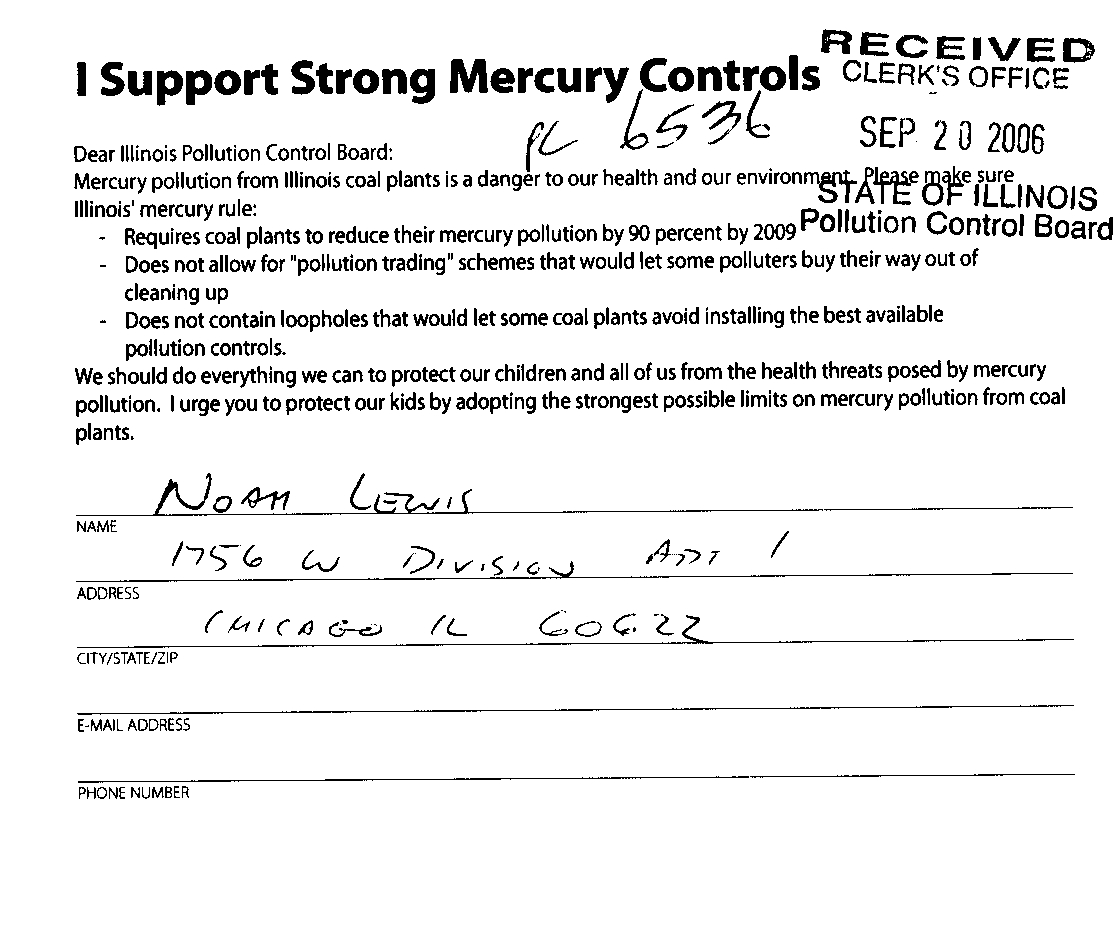 I Support Strong Mercury Controls
RECEIVED
CLERK'S OFFICE
PC 6536
SEP 20 2006
STATE OF ILLINOIS
Pollution Control Board
Dear Illinois Pollution Control Board:
Mercury pollution from Illinois coal plants is a danger to our health and our environment. Please make sure
Illinois' mercury rule:
- Requires coal plants to reduce their mercury pollution by 90 percent by 2009
- Does not allow for "pollution trading" schemes that would let some polluters buy their way out of
cleaning up
- Does not contain loopholes that would let some coal plants avoid installing the best available
pollution controls.
We should do everything we can to protect our children and all of us from the health threats posed by mercury
pollution. I urge you to protect our kids by adopting the strongest possible limits on mercury pollution from coal
plants.
NOAH LEWIS
NAME
1756 W DIVISION APT 1
ADDRESS
CHICAGO IL 60622
CITY/STATE/ZIP
E-MAIL ADDRESS
PHONE NUMBER